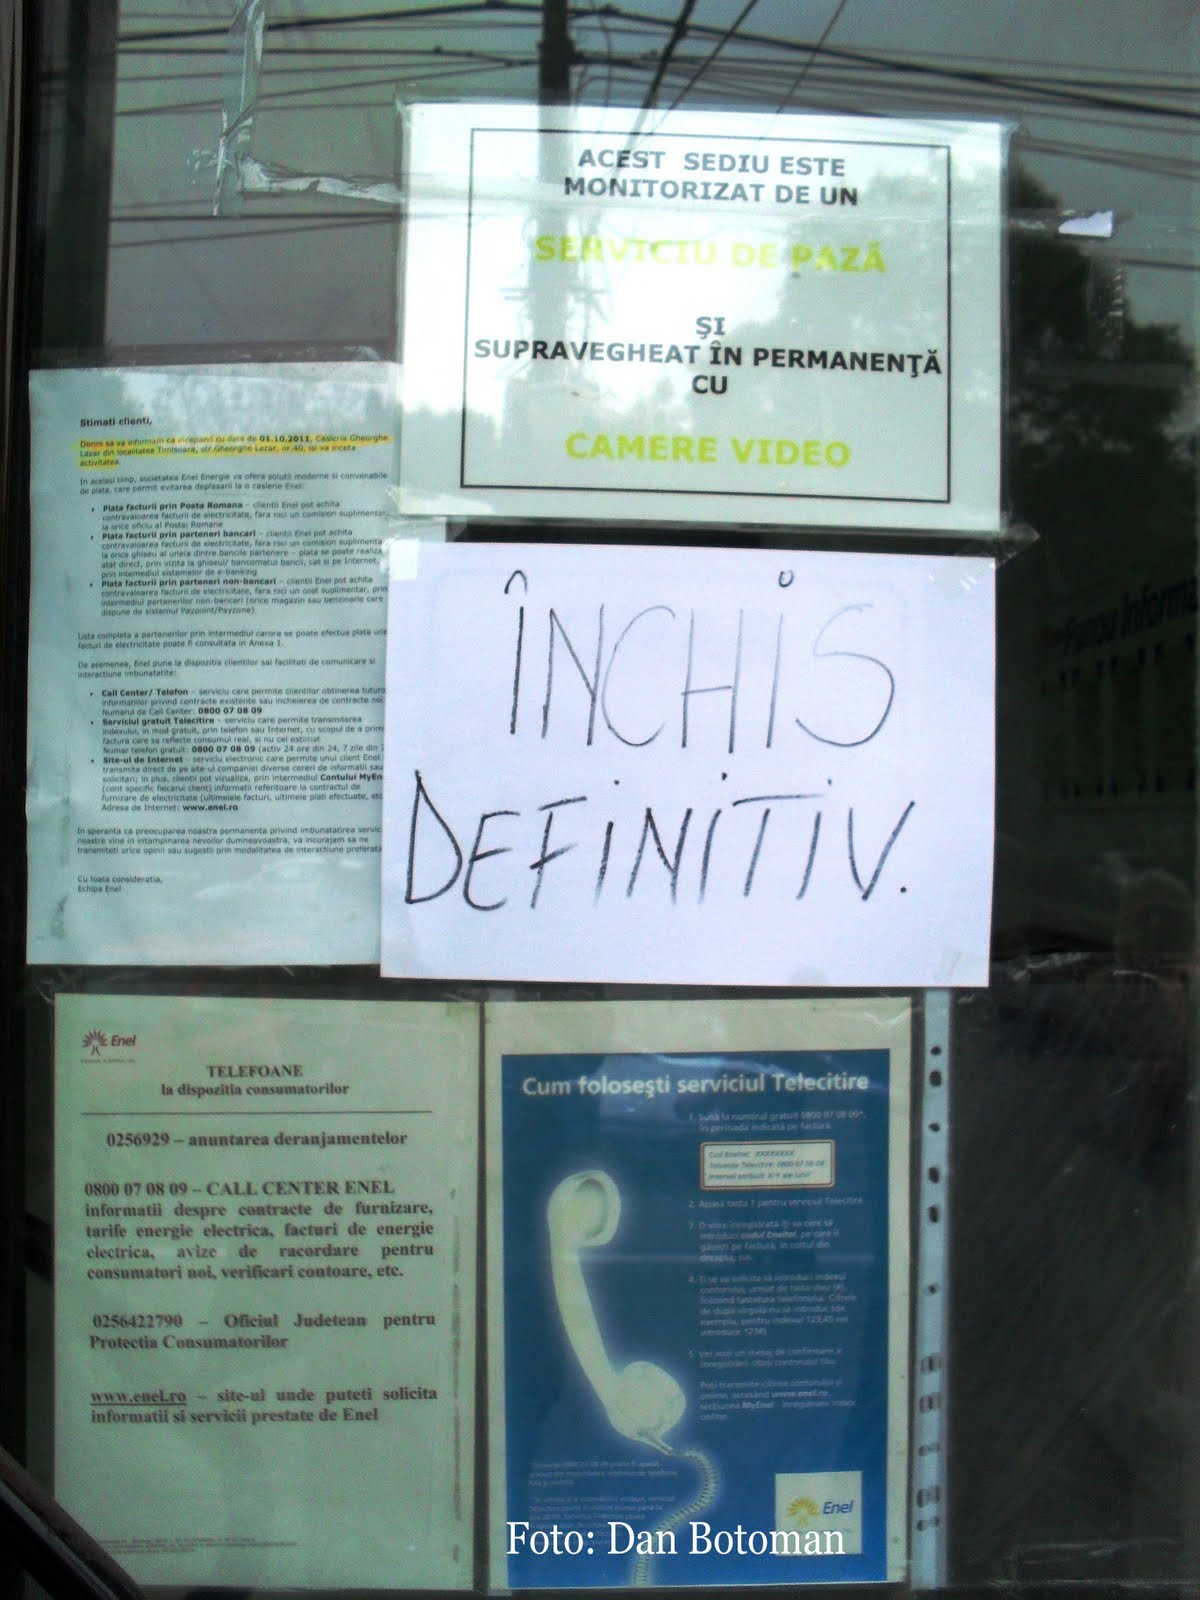 ACEST SEDIU ESTE
MONITORIZAT DE UN
SERVICIU DE PAZĂ
ŞI
SUPRAVEGHEAT ÎN PERMANENŢĂ
CU
CAMERE VIDEO
Stimati clienti,
Dorim sa va informam ca incepand cu data de 01.10.2011, Casieria Gheorghe
Lazar din localitatea Timisoara, str.Gheorghe Lazar, nr.40, isi va inceta
activitatea.
In acelasi timp, societatea Enel Energie va ofera solutii moderne si convenabile
de plata, care permit evitarea deplasarii la o casierie Enel:
• Plata facturii prin Posta Romana – clientii Enel pot achita
contravaloarea facturii de electricitate, fara nici un comision suplimentar,
la orice oficiu al Postei Romane
• Plata facturii prin parteneri bancari – clientii Enel pot achita
contravaloarea facturii de electricitate, fara nici un comision suplimenta
la orice ghiseu al uneia dintre bancile partenere – plata se poate realiza
atat direct, prin vizita la ghiseul/ bancomatul bancii, cat si pe Internet,
prin intermediul sistemelor de e-banking
• Plata facturii prin parteneri non-bancari – clientii Enel pot achita
contravaloarea facturii de electricitate, fara nici un cost suplimentar, prin
intermediul partenerilor non-bancari (orice magazin sau benzinarie care
dispune de sistemul Paypoint/Payzone)
Lista completa a partenerilor prin intermediul carora se poate efectua plata une
facturi de electricitate poate fi consultata in Anexa 1.
De asemenea, Enel pune la dispozitia clientilor sai facilitati de comunicare si
interactiune imbunatatite:
• Call Center/ Telefon – serviciu care permite clientilor obtinerea tuturo
informatiilor privind contracte existente sau incheierea de contracte noi
Numarul de Call Center: 0800 07 08 09
• Serviciul gratuit Telecitire – serviciu care permite transmiterea
indexului, in mod gratuit, prin telefon sau Internet, cu scopul de a primi
factura care sa reflecte consumul real, si nu cel estimat
Numar telefon gratuit: 0800 07 08 09 (activ 24 ore din 24, 7 zile din 7
• Site-ul de Internet – serviciu electronic care permite unui client Enel
transmita direct de pe site-ul companiei diverse cereri de informatii sau
solicitari; in plus, clientii pot vizualiza, prin intermediul Contului MyEn
(cont specific fiecarui client) informatii referitoare la contractul de
furnizare de electricitate (ultimele facturi, ultimele plati efectuate, etc
Adresa de Internet: www.enel.ro
In speranta ca preocuparea noastra permanenta privind imbunatatirea servic
noastre vine in intampinarea nevoilor dumneavoastra, va incurajam sa ne
transmiteti orice opinii sau sugestii prin modalitatea de interactiune preferata
Cu toata consideratia,
Echipa Enel
ÎNCHIS
DEFINITIV.
Panou informa
Enel
TELEFOANE
la dispozitia consumatorilor
0256929 – anuntarea deranjamentelor
0800 07 08 09 – CALL CENTER ENEL
informatii despre contracte de furnizare,
tarife energie electrica, facturi de energie
electrica, avize de racordare pentru
consumatori noi, verificari contoare, etc.
0256422790 – Oficiul Judetean pentru
Protectia Consumatorilor
www.enel.ro – site-ul unde puteti solicita
informatii si servicii prestate de Enel
Cum foloseşti serviciul Telecitire
1. Sună la numărul gratuit 0800 07 08 09*,
în perioada indicată pe factură.
Cod Eneltel: XXXXXXXX
Telecitire: 0800 07 08 09
2. Apasă tasta 1 pentru serviciul Telecitire
3. O voce înregistrată îţi va cere să
introduci codul Eneltel, pe care îl
găseşti pe factură, în colţul din
dreapta, sus.
4. Ţi se va solicita să introduci indexul
contorului, urmat de tasta diez (#),
folosind tastatura telefonului. Cifrele
de după virgulă nu se introduc (de
exemplu, pentru indexul 123,45 vei
introduce 123#)
5. Vei auzi un mesaj de confirmare a
înregistrării citirii contorului tău.
Poţi transmite citirea contorului şi
online, accesând www.enel.ro,
secţiunea MyEnel - înregistrare index
online
Enel
Foto: Dan Botoman